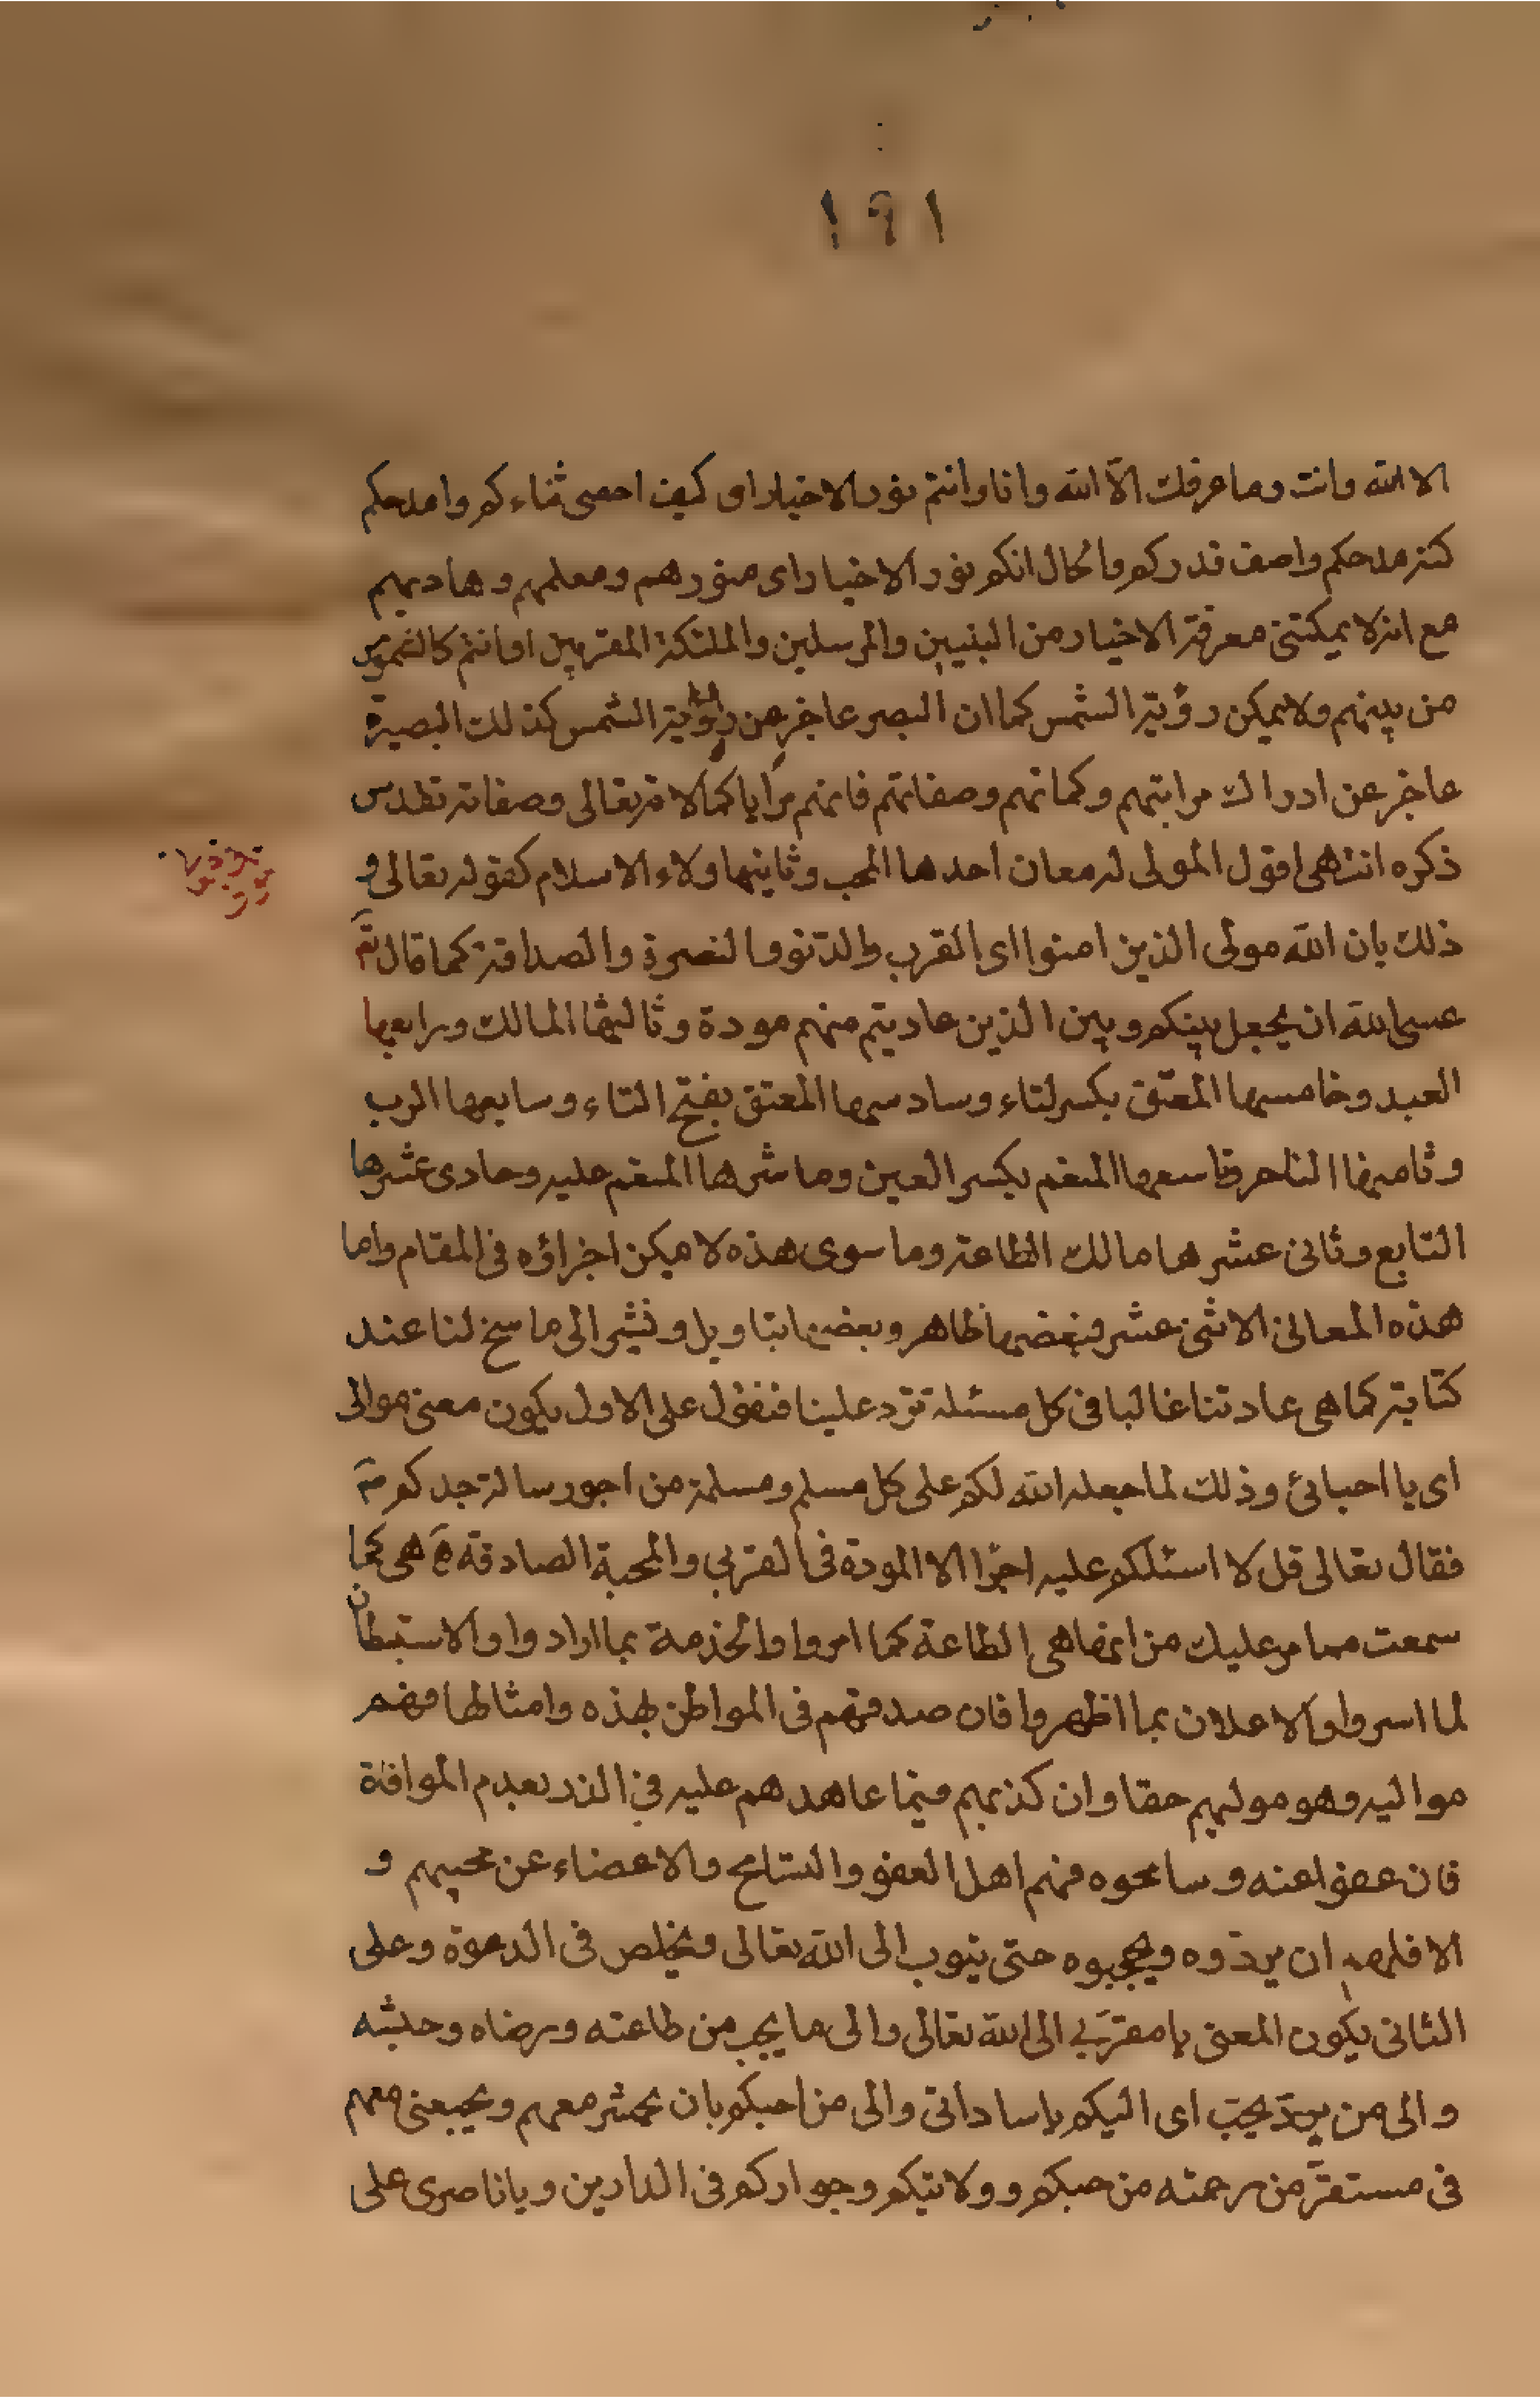 ١٩١
الا الله وانت وما عرفك الّا الله وانا وانتم نور الاخيار او كيف احصى ثناءكم وامدحكم
كنه مدحكم واصف قدركم والحال انكم نور الاخيار اى منورهم ومعلمهم وهاديهم
مع انه لا يمكننى معرفة الاخيار من النبيين والمرسلين والملئكة المقربين او انتم كالشموس
من بينهم ولا يمكن رؤية الشمس كما ان البصر عاجز عن رؤية الشمس كذلك البصيرة
عاجز عن ادراك مراتبهم وكمالاتهم وصفاتهم فانهم مرايا كمالاته تعالى وصفاته تقدس
ذكره انتهى اقول المولى له معان احدها المحب وثانيها ولاء الاسلام كقوله تعالى و
ذلك بان الله مولى الذين امنوا اى القرب والدنو والنصرة والصداقة كما قال تع
عسى الله ان يجعل بينكم وبين الذين عاديتم منهم مودة وثالثها المالك ورابعها
العبد وخامسها المعتق بكسر التاء وسادسها المعتق بفتح التاء وسابعها الرب
وثامنها الناصر وتاسعها المنعم بكسر العين وعاشرها المنعم عليه وحادى عشرها
التابع وثانى عشرها مالك الطاعة وما سوى هذه لا يمكن اجراؤه فى المقام واما
هذه المعانى الاثنى عشر فبعضها ظاهر وبعضها بتاويل ونشير الى ما سنح لنا عند
كتابته كما هى عادتنا غالبا فى كل مسئلة ترد علينا فنقول على الاول يكون معنى موالى
اى يا احبائى وذلك لما جعله الله لكم على كل مسلم ومسلمة من اجور رسالة جدكم ص
فقال تعالى قل لا اسئلكم عليه اجرًا الا المودة فى القربى والمحبة الصادقة هى كما
سمعت مما مر عليك من انها هى الطاعة كما امروا والخدمة بما ارادوا والاستبطان
لما اسروا والاعلان بما اظهروا فان صدقهم فى المواطن بهذه وامثالها فهم
مواليه وهو موليهم حقا وان كذبهم فيما عاهدهم عليه فى الذر بعدم الموافاة
فان عفوا عنه وسامحوه فهم اهل العفو والتسامح والاغضاء عن محبيهم و
الا فلهم ان يردّوه ويحجبوه حتى يتوب الى الله تعالى ويخلص فى الدعوة وعلى
الثانى يكون المعنى يا مقرّبى الى الله تعالى والى ما يحب من طاعته ورضاه وجنته
والى من يحبّ اى اليكم يا ساداتى والى من احبكم بان يحشر معهم ويجمعنى معهم
فى مستقرّ من رحمته من حبكم وولايتكم وجواركم فى الدارين ويا ناصرى على